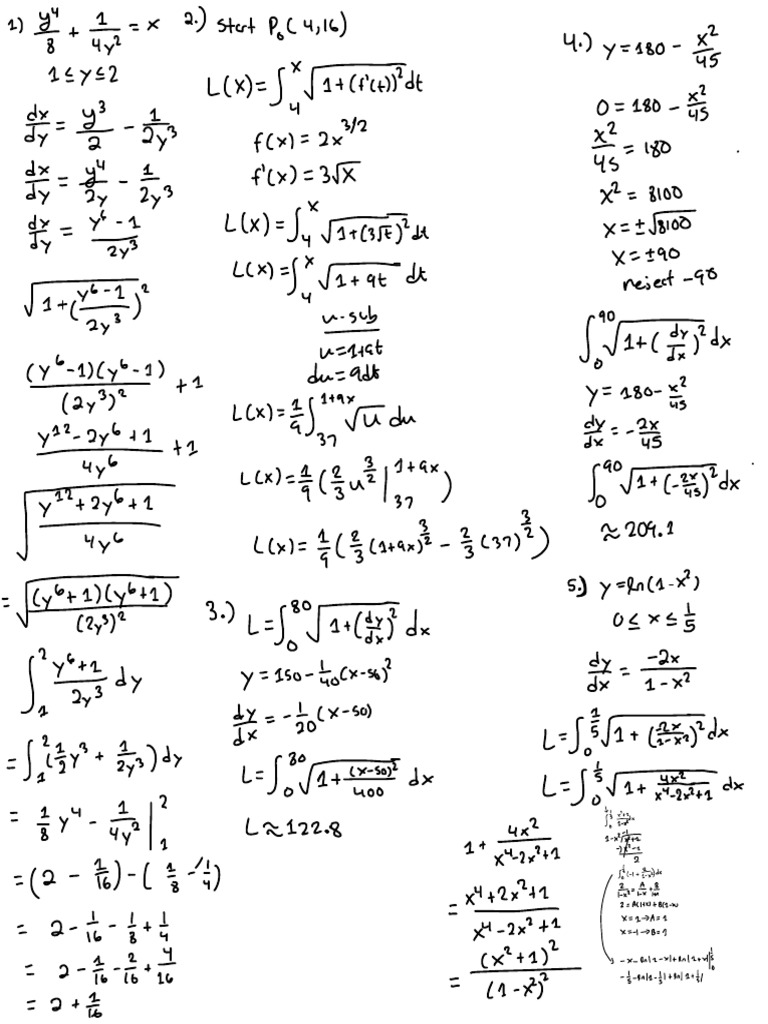 1) y⁴/8 + 1/4y² = x
1 ≤ y ≤ 2
dx/dy = y³/2 - 1/2y³
dx/dy = y⁴/2y - 1/2y³
dx/dy = y⁶-1/2y³
√1+(y⁶-1/2y³)²
(y⁶-1)(y⁶-1)/(2y³)² + 1
y¹²-2y⁶+1/4y⁶ + 1
√y¹²+2y⁶+1/4y⁶
= √(y⁶+1)(y⁶+1)/(2y³)²
∫₁² y⁶+1/2y³ dy
= ∫₁² (1/2 y³ + 1/2y³) dy
= 1/8 y⁴ - 1/4y² |₁²
= (2 - 1/16) - (1/8 - 1/4)
= 2 - 1/16 - 1/8 + 1/4
= 2 - 1/16 - 2/16 + 4/16
= 2 + 1/16
2.) Start P₀(4,16)
L(x) = ∫₄ˣ √1+(f'(t))² dt
f(x) = 2x^3/2
f'(x) = 3√x
L(x) = ∫₄ˣ √1+(3√t)² dt
L(x) = ∫₄ˣ √1+9t dt
u-sub
u=1+9t
du=9dt
L(x) = 1/9 ∫₃₇^1+9x √u du
L(x) = 1/9 (2/3 u^3/2 |₃₇^1+9x)
L(x) = 1/9 (2/3 (1+9x)^3/2 - 2/3 (37)^3/2)
3.) L = ∫₀⁸⁰ √1+(dy/dx)² dx
y = 150 - 1/40 (x-50)²
dy/dx = -1/20 (x-50)
L = ∫₀⁸⁰ √1+(x-50)²/400 dx
L ≈ 122.8
4.) y = 180 - x²/45
0 = 180 - x²/45
x²/45 = 180
x² = 8100
x = ±√8100
x = ±90
reject -90
∫₀⁹⁰ √1+(dy/dx)² dx
y = 180 - x²/45
dy/dx = -2x/45
∫₀⁹⁰ √1+(-2x/45)² dx
≈ 209.1
5.) y = ln(1-x²)
0 ≤ x ≤ 1/5
dy/dx = -2x/1-x²
L = ∫₀^1/5 √1+(2x/1-x²)² dx
L = ∫₀^1/5 √1+4x²/x⁴-2x²+1 dx
1 + 4x²/x⁴-2x²+1
= x⁴+2x²+1/x⁴-2x²+1
= (x²+1)²/(1-x²)²
2 = A(1+x)+B(1-x)
x=1→A=1
x=-1→B=1
-x-ln|1-x|+ln|1+x|
-1/5-ln|1-1/5|+ln|1+1/5|